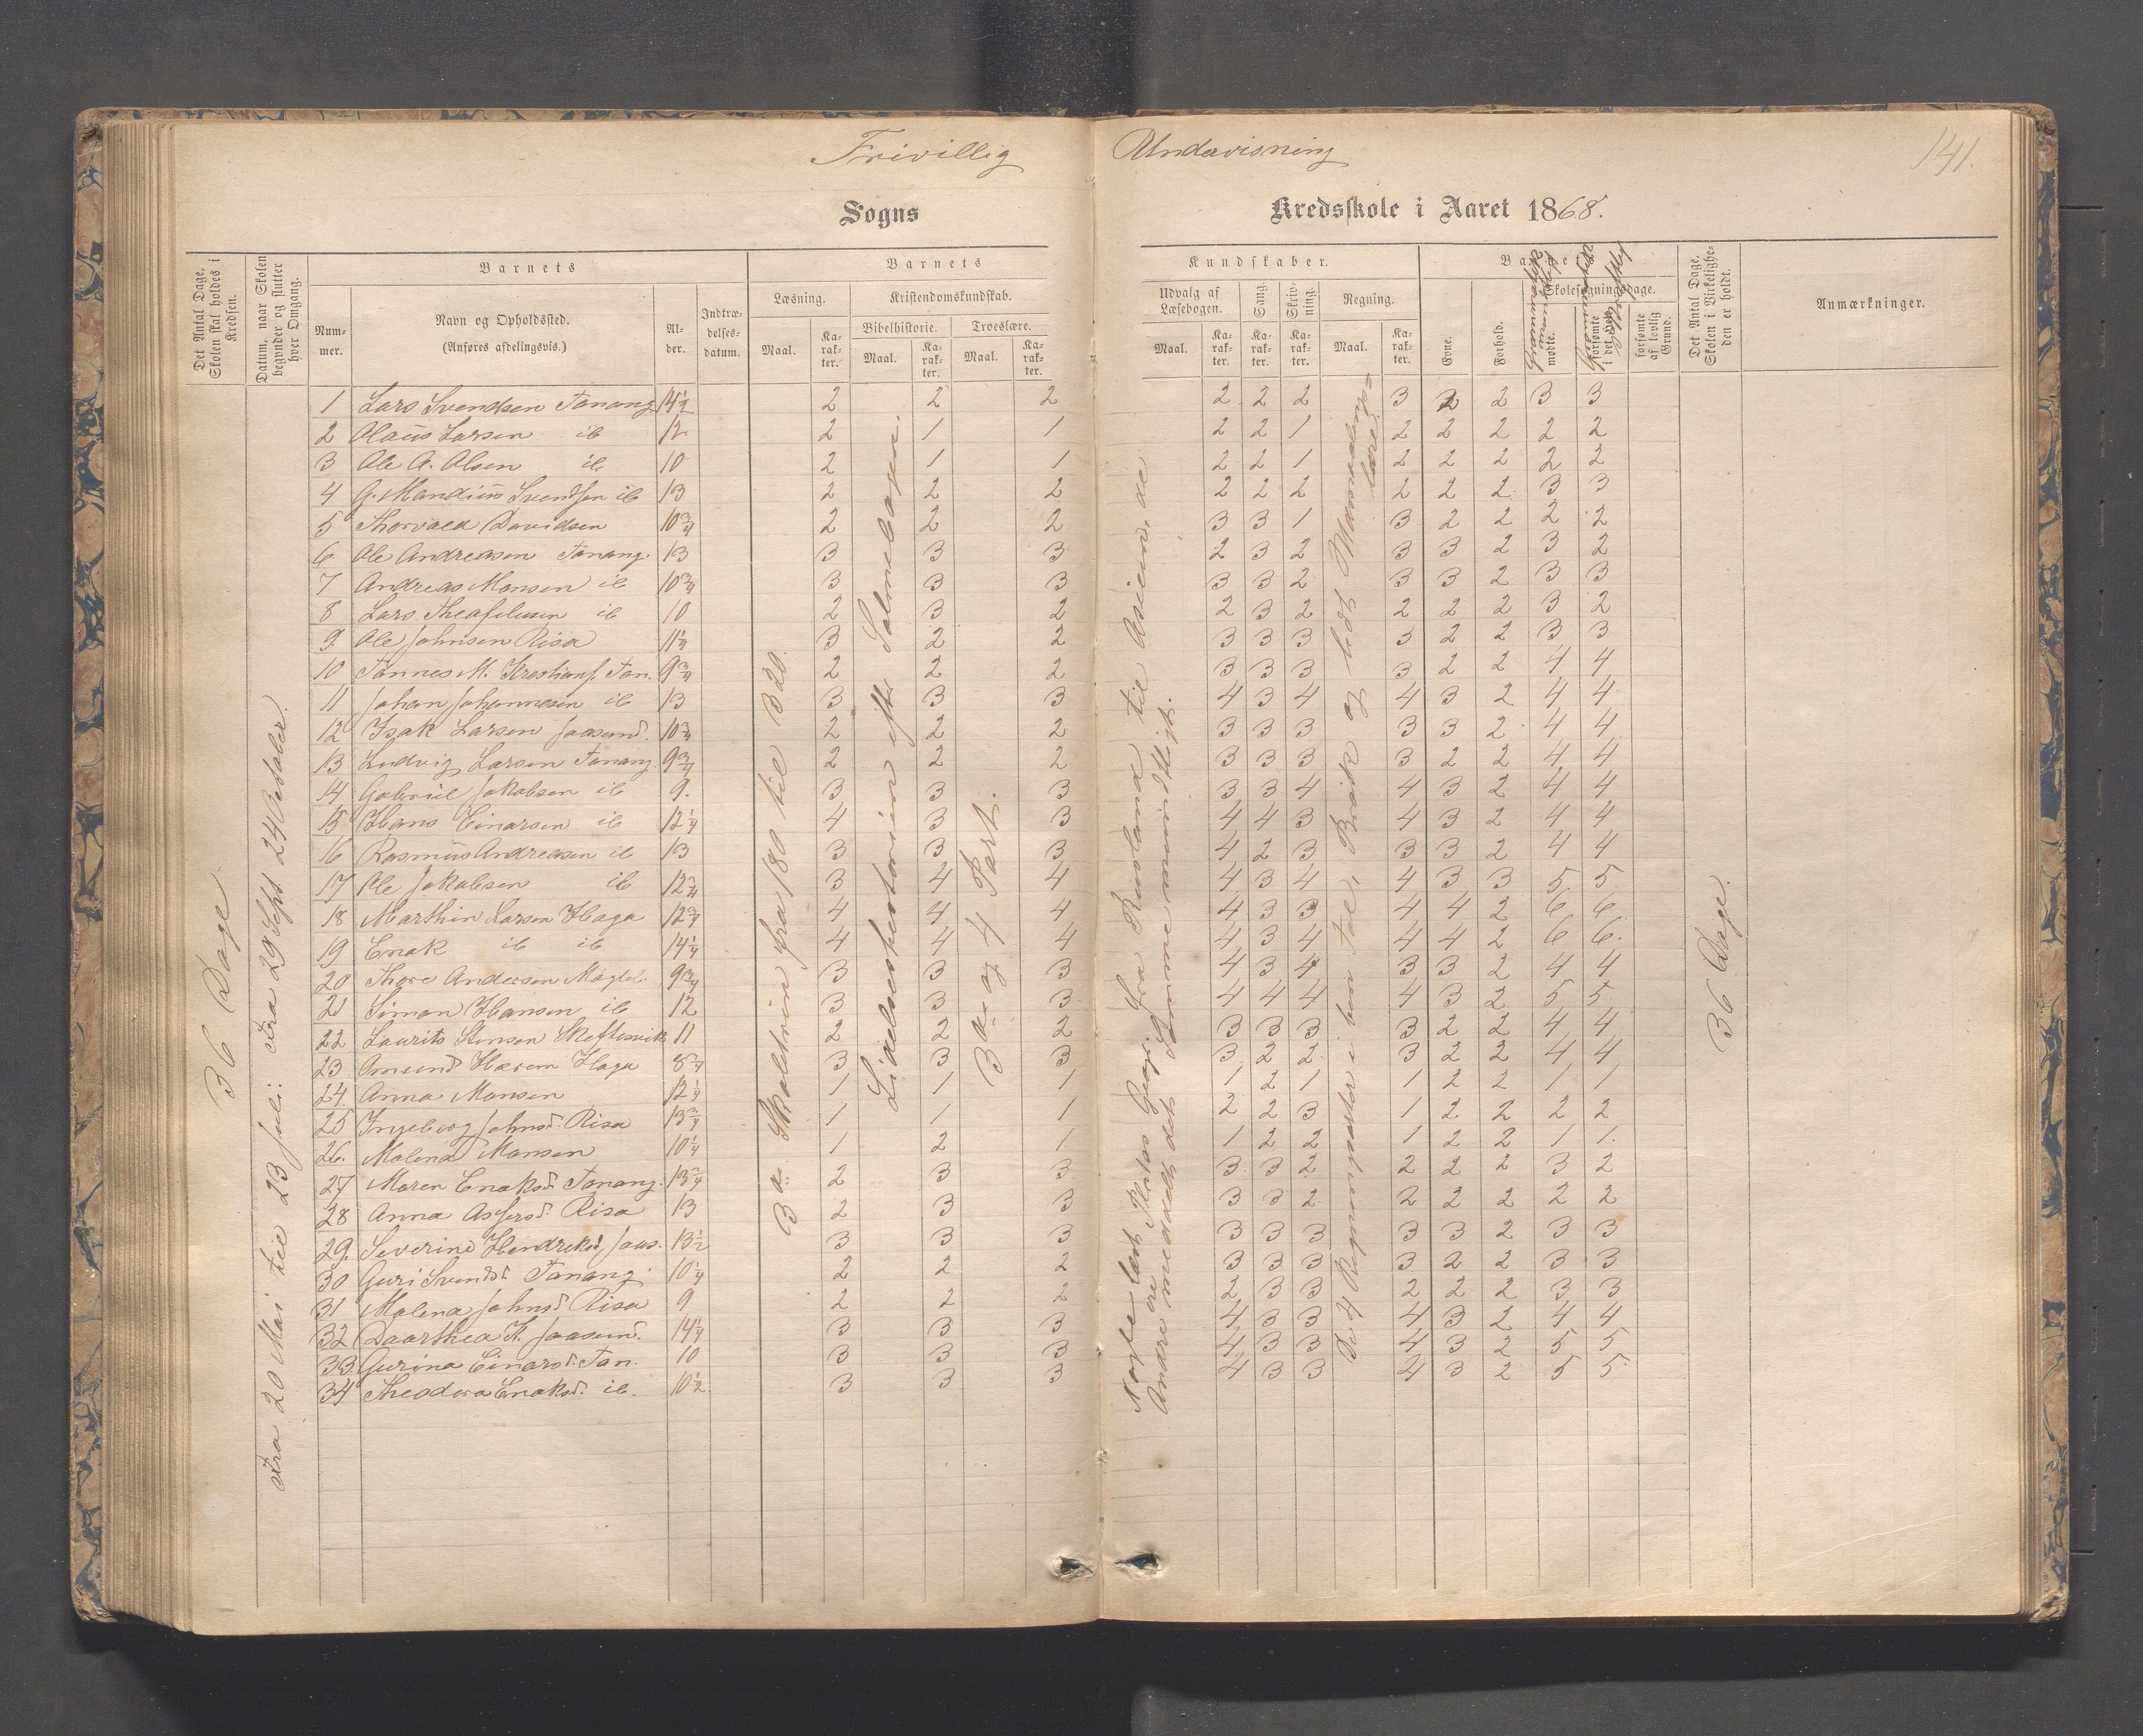 Frivillig Undervisning
141.
Sogns Kredsskole i Aaret 1868.
Det Antal Dage, Skolen skal holdes i Kredsen.
Datum, naar Skolen begynder og slutter hver Omgang.
Barnets
Num-mer.
Navn og Opholdssted.
(Anføres afdelingsvis.)
Al-der.
Indtræ-delses-datum.
Barnets
Læsning.
Maal.
Ka-rak-ter.
Kristendomskundskab.
Bibelhistorie.
Maal.
Ka-rak-ter.
Troeslære.
Maal.
Ka-rak-ter.
Kundskaber.
Udvalg af Læsebogen.
Maal.
Ka-rak-ter.
Sang.
Ka-rak-ter.
Skriv-ning.
Ka-rak-ter.
Regning.
Maal.
Ka-rak-ter.
Barnets
Evne.
Forhold.
Skolesøgningsdage.
mødte.
forsømte i det Hele.
forsømte af lovlig Grund.
Det Antal Dage, Skolen i Virkelighe-den er holdt.
Anmærkninger.
36 Dage.
Fra 20 Mai til 23 Juli: Fra 29 Sept 24 October.
3 a: Skoletrin fra 180 til 320.
Lidelseshistorien efter Salmebogen.
3 a- og 4 Part.
Andre meddelt det Samme mundtligt.
36 Dage.
1 Lars Svendsen Tanang 14 1/2 2 2 2 2 2 2 3 2 2 3 3
2 Olaus Larsen ib 12 2 1 1 2 2 1 2 2 2 2 2
3 Ole A. Olsen ib 10 2 1 1 2 2 1 2 2 2 2 2
4 G. Mandius Svendsen ib 13 2 2 2 2 2 2 2 2 2 3 3
5 Thorvald Davidsen 10 3/4 2 2 2 3 3 1 3 2 2 2 2
6 Ole Andreasen Tanang. 13 3 3 3 2 3 2 3 3 2 3 2
7 Andreas Monsen ib 10 3/4 3 3 3 3 3 2 3 3 2 3 3
8 Lars Theofilusen ib 10 2 3 2 2 3 2 2 2 2 3 2
9. Ole Johnsen Risa 11 1/4 3 2 2 3 3 3 3 2 2 3 3
10 Tønnes M. Krestians. Tan. 9 3/4 2 2 2 3 3 3 3 2 2 4 4
11 Johan Johannesen ib 13 3 3 3 4 3 4 4 3 2 4 4
12 Isak Larsen Jaasund. 10 3/4 2 2 2 3 3 3 3 3 2 4 4
13 Ludvig Larsen Tanang 9 3/4 2 2 2 3 3 3 3 2 2 4 4
14 Gabriel Jakobsen ib 9. 3 3 3 3 3 4 4 3 2 4 4
15 Hans Einarsen ib 12 1/4 4 3 3 4 4 3 4 3 2 4 4
16 Rasmus Andreasen ib 13 3 3 3 4 2 3 3 3 2 4 4
17 Ole Jakobsen ib 12 3/4 3 4 4 4 3 4 4 3 3 5 5
18 Marthin Larsen Haga 12 3/4 4 4 4 4 3 3 4 4 2 6 6
19 Enok ib ib 14 1/4 4 4 4 4 3 4 4 4 2 6 6.
20 Thore Andersen 9 3/4 3 3 3 4 3 4 3 3 2 4 4
21 Simon Hansen ib 12 3 3 3 4 4 4 4 3 2 5 5
22 Laurits 11 2 2 2 3 3 3 3 2 2 4 4
23 Haga 8 3/4 3 3 3 3 2 2 3 2 2 4 4
24. Anna Monsen 12 1/4 1 1 1 1 2 1 1 2 2 1 1
25 Ingeborg Johnsd. Risa 13 3/4 1 1 1 2 2 3 1 2 2 2 2
26. Malena Monsen 10 1/4 1 2 1 1 2 2 1 2 2 1 1.
27 Maren Enoksd. Tanang. 13 3/4 2 3 3 3 3 2 2 2 2 3 2
28 Anna Asgersd. Risa 13 2 3 3 3 3 2 2 2 2 2 2
29. Severine Hendriksd. Jaas. 13 1/2 3 3 3 3 3 3 3 3 2 3 3
30 Guri Svendsd. Tanang. 10 1/4 2 2 2 3 3 3 3 2 2 3 3
31 Malena Johnsd Risa 9 2 2 2 2 3 3 2 2 2 3 3
32 Daarthea K. Jaasund. 14 1/4 3 3 3 4 3 3 4 3 2 4 4
33. Gurina Einarsd. Tan. 10 3 3 3 4 3 3 4 3 2 5 5
34 Theodora Enoksd. ib. 10 1/2 3 3 3 4 3 3 4 3 2 5 5.